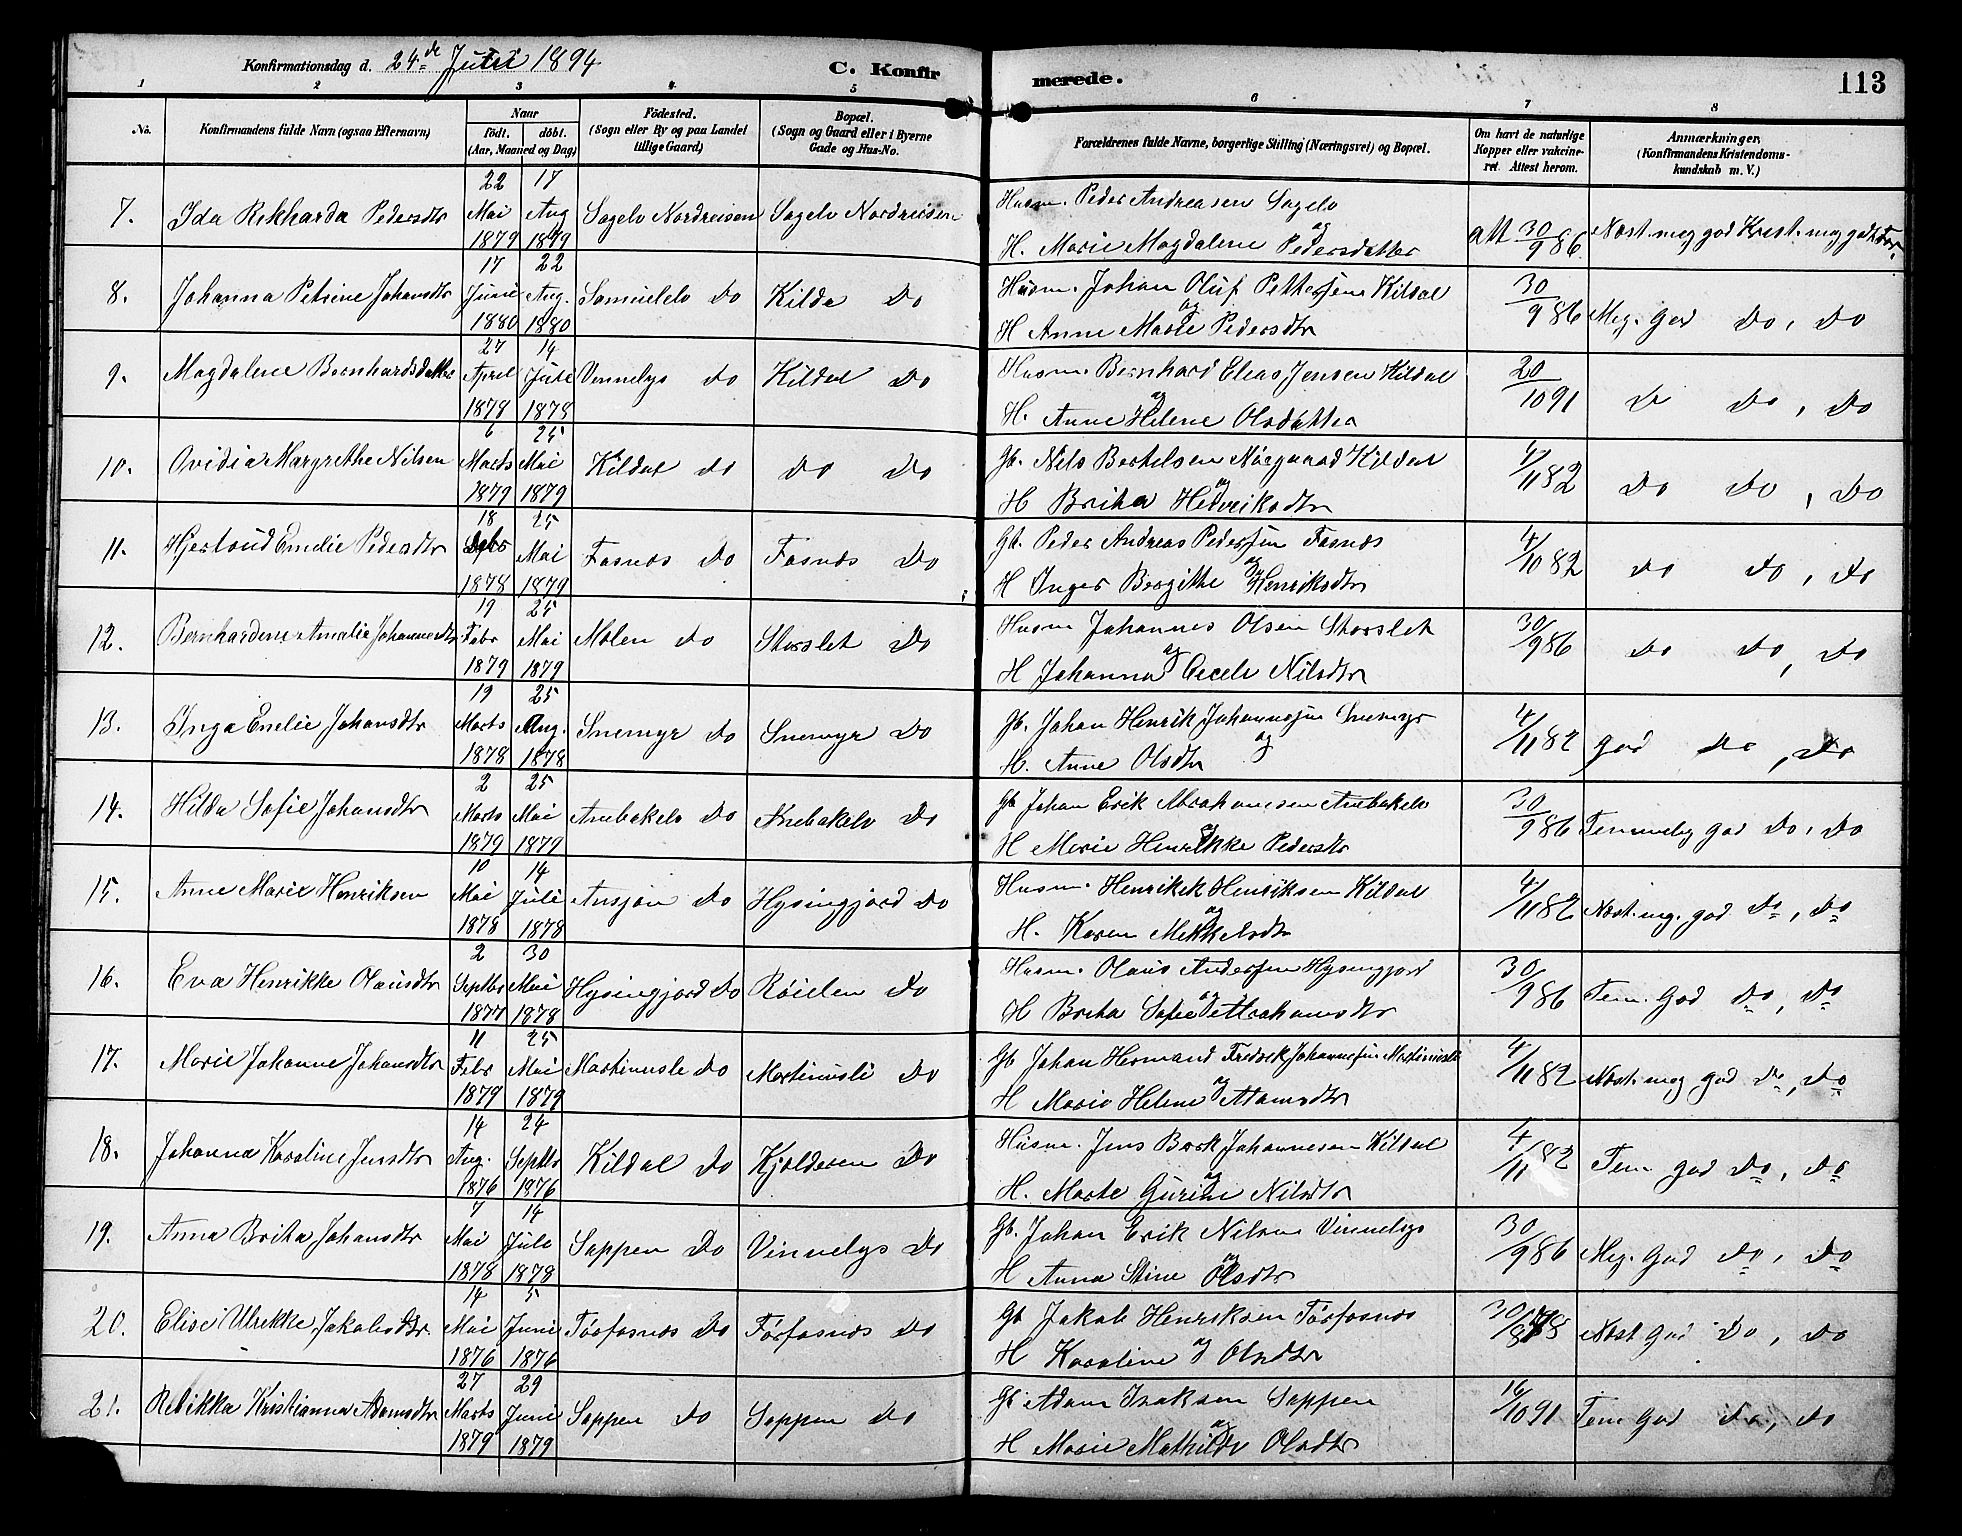 Konfirmationsdag d. 24de Juni 1894
C. Konfirmerede.
113
1 2 3 4 5 6 7 8
No.
Konfirmandens fulde Navn (ogsaa Efternavn)
Naar
födt. döbt.
(Aar, Maaned og Dag)
Födested.
(Sogn eller By og paa Landet
tillige Gaard)
Bopæl.
(Sogn og Gaard eller i Byerne
Gade og Hus-No.
Forældrenes fulde Navne, borgerlige Stilling (Næringsvei) og Bopæl.
Om havt de naturlige
Kopper eller vakcine-
ret. Attest herom.
Anmærkninger,
(Konfirmandens Kristendoms-
kundskab m. V.)
7. Ida Rikharda Pedersdtr 22 Mai 1879 17 Aug 1879 Sagelv Nordreisen Sagelv Nordreisen Husm. Peder Andreasen Sagelv
og
H. Marie Magdalene Pedersdatter att 30/9 86. Næst. meg god Krist. meg god For,
8. Johanna Petrine Johansdtr 17 Juni 1880 22 Aug. 1880 Samuelelv Do Kilda Do Husm. Johan Oluf Pettersen Kildal
og
H Anne Marie Pedersdtr 30/9 86 Meg. God Do, Do
9. Magdalene Bernhardsdatter 27 April 1879 14 Juli 1879 Vinnelys Do Kildal Do Husm. Bernhard Elias Jensen Kildal
og
H. Anne Helene Olsdatter 20/10 91 Do Do, Do
10. Ovidia Margrethe Nilsen 6 Marts 1879 25 Mai 1879 Kildal Do Do Do Gb. Nils Bertelsen Nörgaard Kildal
og
H Brita Henriksdtr 4/11 82 Do Do, Do
11. Hjerlaud Emelie Pedersdtr 18 1878 25 Mai 1879 Fosnæs Do Fosnæs Do Gb. Peder Andreas Pedersen Fosnæs
og
H Inger Bergithe Henriksdtr 4/10 82 Do Do, Do
12. Bernhardene Amalie Johannesdtr 19 Febr 1879 25 Mai 1879 Molen Do Storslet Do Husm Johannes Olsen Storslet
og
H Johanna Cecele Nilsdtr 30/9 86 Do Do, Do
13. Inga Emelie Johansdtr 19 Marts 1878 25 Aug. 1878 Snemyr Do Snemyr Do Gb. Johan Henrik Johannesen Snemyr
og
H. Anne Olsdtr 4/11 82 God Do, Do
14. Hilda Sofie Johansdtr 2 Marts 1879 25 Mai 1879 Do Do Gb Johan Erik Abrahamsen
og
H Marie Henrikke Pedersdtr 30/9 86 Temmelig god Do, Do
15. Anne Marie Henriksen 10 Mai 1878 14 Juli 1878 Ansjön Do Hysingjord Do Husm. Henrik Henriksen Kildal
og
H. Karen Mikkelsdtr 4/11 82 Næst. meg. god Do, Do
16. Eva Henrikke Olausdtr 2 Septbr 1877 30 Mai 1878 Hysingjord Do Röielen Do Husm. Olaus Andersen Hysingjord
og
H Brita Sofie Abrahamsdtr 30/9 86 Tem. God Do, Do
17. Marie Johanne Johansdtr 11 Febr 1879 25 Mai 1879 Martinusli Do Martinusli Do Gb Johan Hermand Fredrek Johannesen Martinusli
og
H Marie Helene Adamsdtr 4/11 82 Næst. meg god Do, Do
18. Johanna Karoline Jensdtr 14 Aug. 1876 24 Septbr 1876 Kildal Do Kjelderen Do Husm. Jens Berk Johannesen Kildal
og
H. Marte Gurine Nilsdtr 4/11 82 Tem god Do, Do
19. Anna Brita Johansdtr 7 Mai 1878 14 Juli 1878 Sappen Do Vinnelys Do Gb. Johan Erik Nilsen Vinnelys
og
H Anna Stine Olsdtr 30/9 86 Meg. God Do, Do
20. Elise Ulrikke Jakobsdtr 14 Mai 1876 5 Juni 1876 Törfosnæs Do Törfosnæs Do Gb Jakob Henriksen Törfosnæs
og
H Karoline Olsdtr 30/8 Næst God Do, Do
21. Rebikka Kristianna Adamsdtr 27 Marts 1879 29 Juni 1879 Sappen Do Sappen Do Gb Adam Isaksen Sappen
og
H Marie Mathilde Olsdtr 16/10 91 Tem God Do, Do